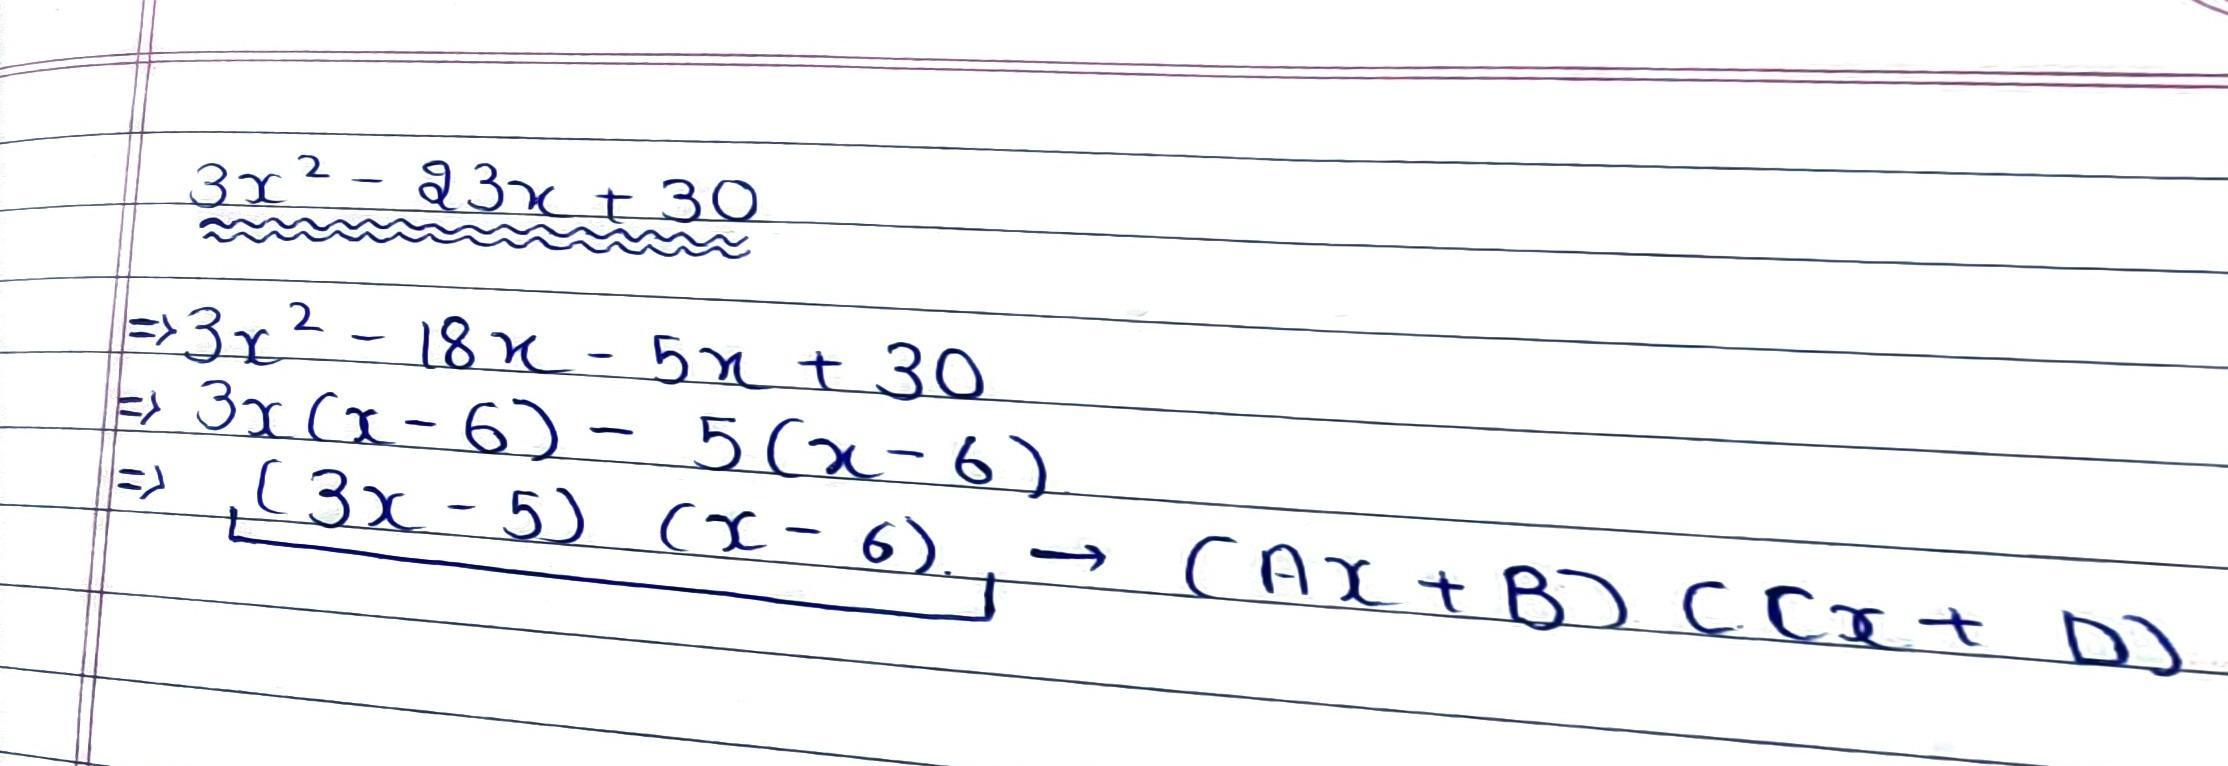 3x² - 23x + 30
⇒ 3x² - 18x - 5x + 30
⇒ 3x(x - 6) - 5(x - 6)
⇒ (3x - 5) (x - 6). → (Ax + B) (Cx + D)